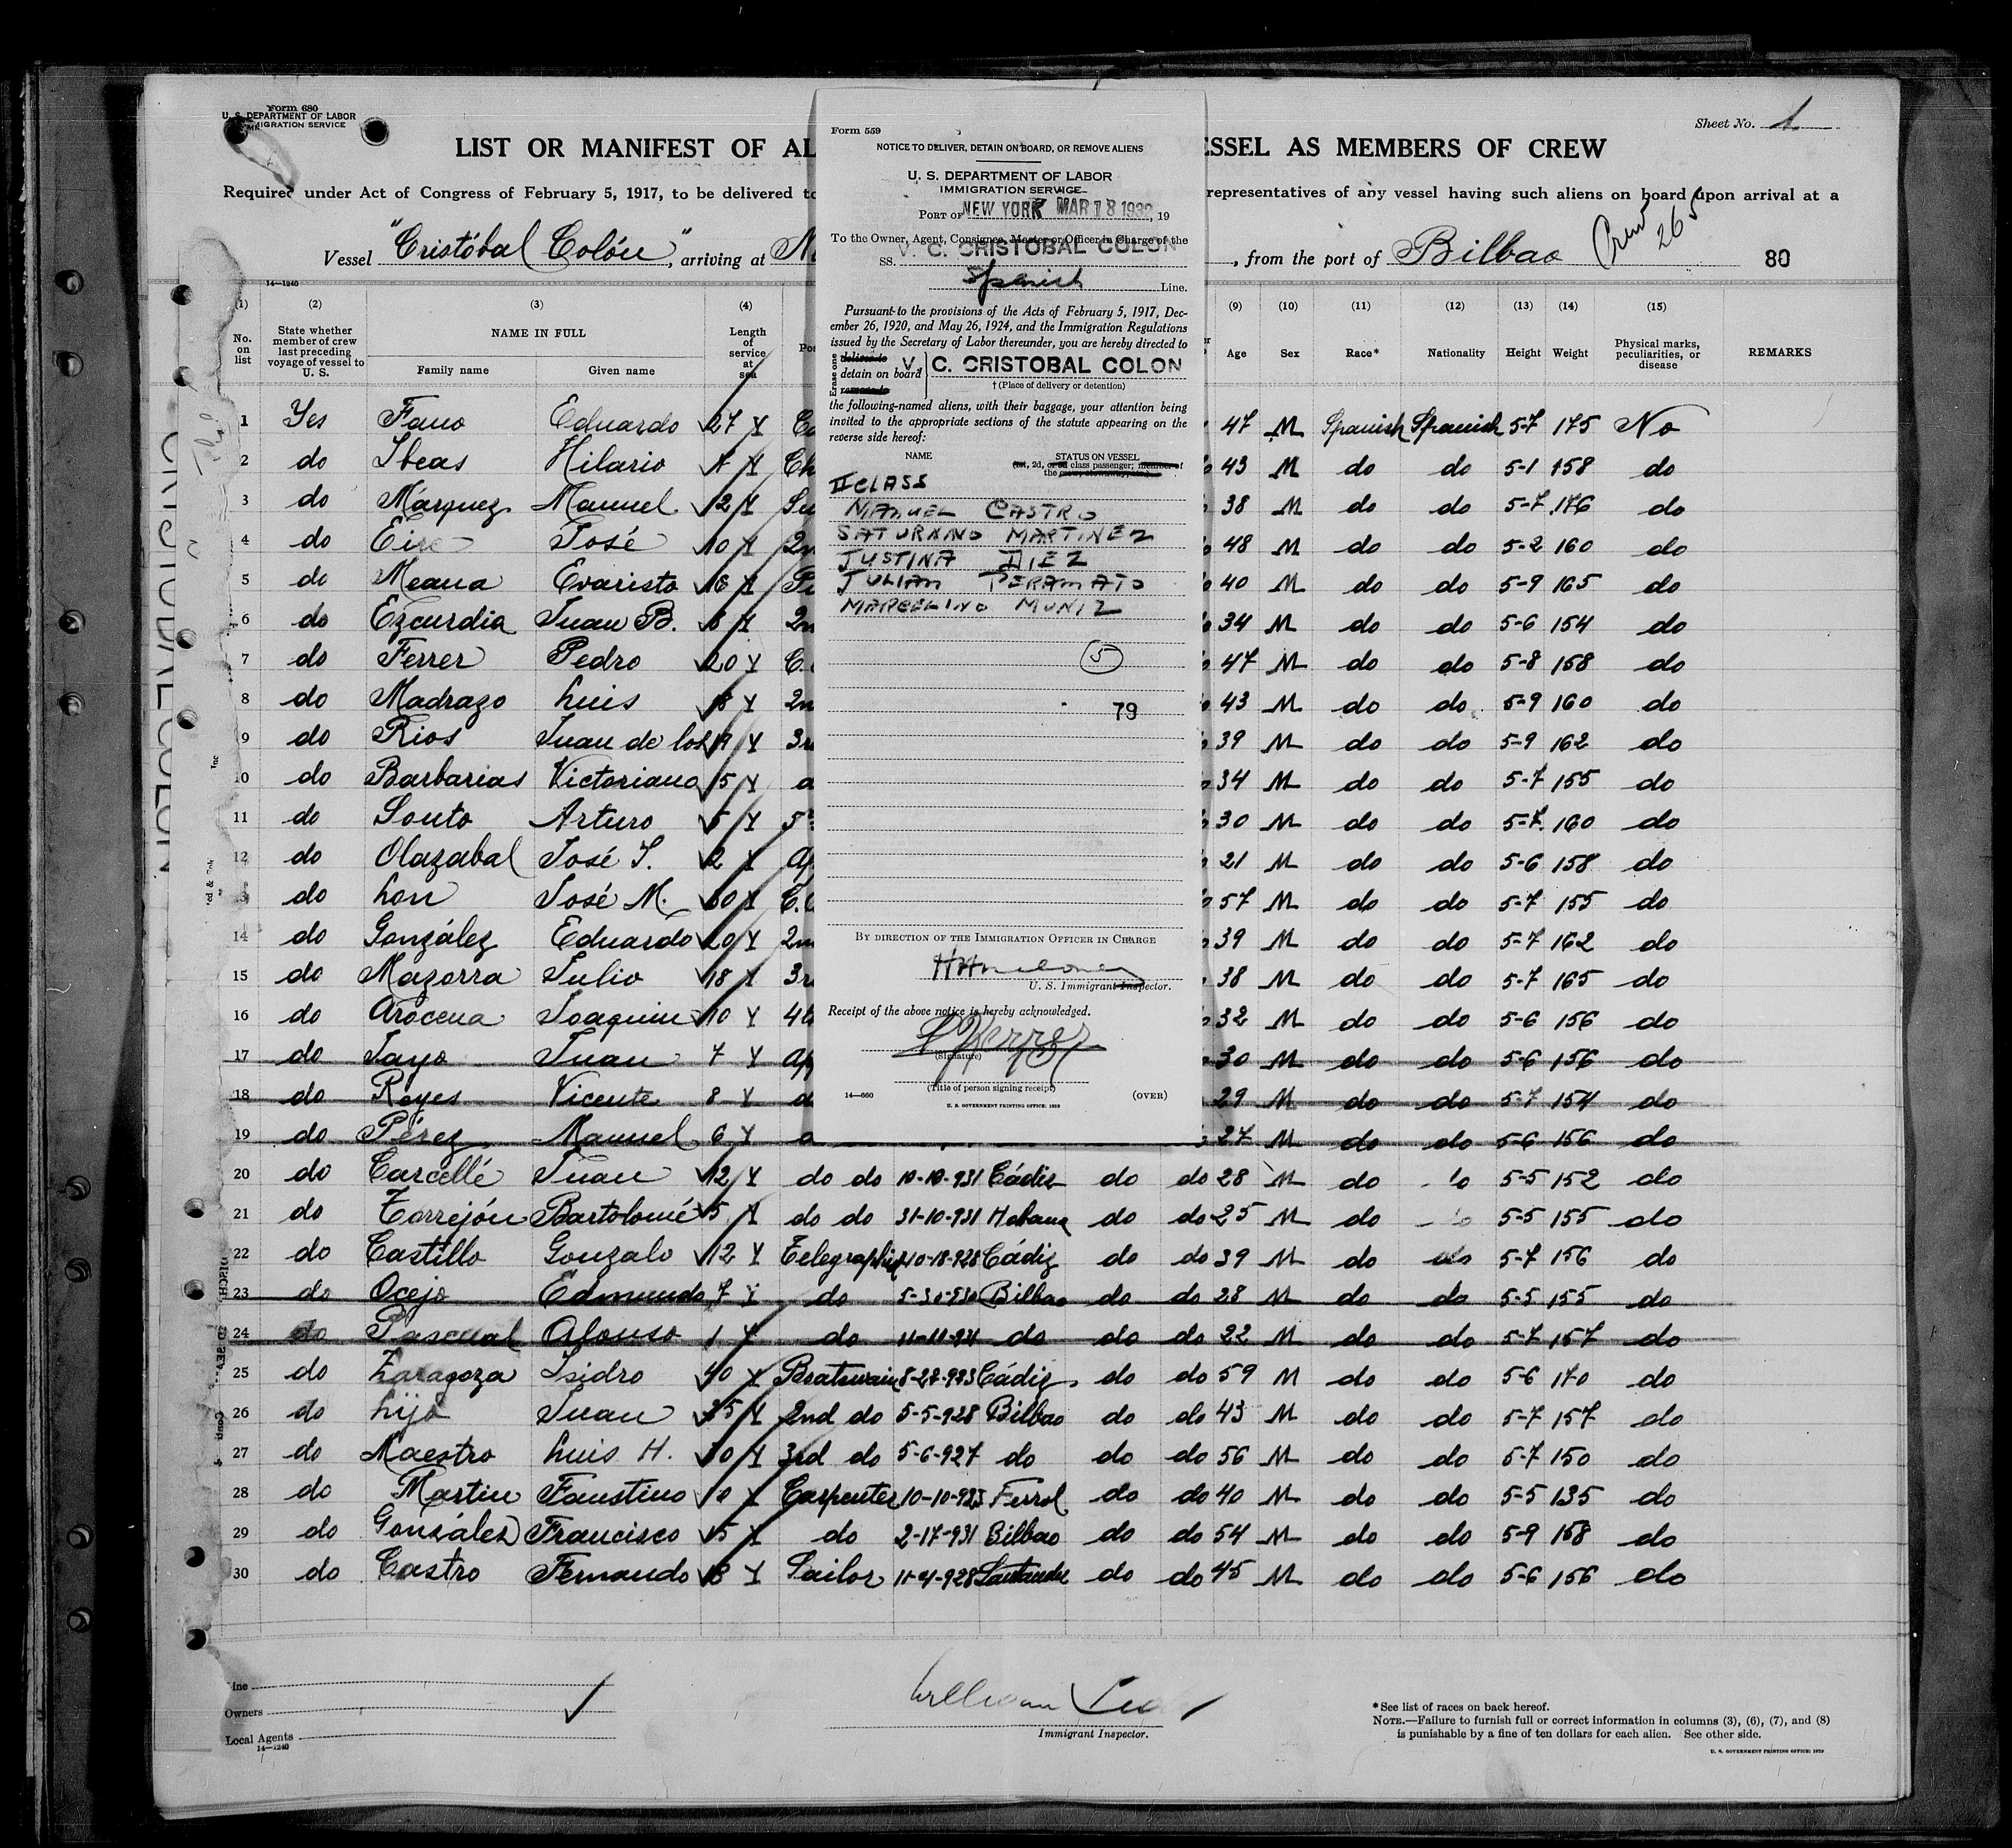 Form 680
U. S. DEPARTMENT OF LABOR
IMMIGRATION SERVICE
Sheet No. 1
LIST OR MANIFEST OF AL
ESSEL AS MEMBERS OF CREW
Required under Act of Congress of February 5, 1917, to be delivered to
representatives of any vessel having such aliens on board upon arrival at a
Vessel "Cristóbal Colón", arriving at N
, from the port of Bilbao
Crew 265
80
14—1240
(1) (2) (3) (4) (9) (10) (11) (12) (13) (14) (15)
No. on list
State whether member of crew last preceding voyage of vessel to U. S.
NAME IN FULL
Family name Given name
Length of service at sea
Age Sex Race* Nationality Height Weight Physical marks, peculiarities, or disease REMARKS
Form 559
NOTICE TO DELIVER, DETAIN ON BOARD, OR REMOVE ALIENS
U. S. DEPARTMENT OF LABOR
IMMIGRATION SERVICE
PORT OF NEW YORK MAR 18 1932, 19
To the Owner, Agent, Consignee, Master or Officer in Charge of the
SS. V. C. CRISTOBAL COLON
Spanish Line.
Pursuant to the provisions of the Acts of February 5, 1917, Dec-
ember 26, 1920, and May 26, 1924, and the Immigration Regulations
issued by the Secretary of Labor thereunder, you are hereby directed to
Erase one
deliver to
detain on board
remove to
V. C. CRISTOBAL COLON
† (Place of delivery or detention)
the following-named aliens, with their baggage, your attention being
invited to the appropriate sections of the statute appearing on the
reverse side hereof:
NAME STATUS ON VESSEL
(1st, 2d, or 3d class passenger; member of
the crew, stowaway, etc.)
II CLASS
MANUEL CASTRO
SATURNINO MARTINEZ
JUSTINA DIEZ
JULIAN PERAMATO
MARCELINO MUNIZ
5
79
BY DIRECTION OF THE IMMIGRATION OFFICER IN CHARGE
U. S. Immigrant Inspector.
Receipt of the above notice is hereby acknowledged.
(Signature)
(Title of person signing receipt)
14—660 U. S. GOVERNMENT PRINTING OFFICE: 1929 (OVER)
1 Yes Fano Eduardo 27 Y 47 M Spanish Spanish 5-7 175 No
2 do Ibeas Hilario Y Ch 43 M do do 5-1 158 do
3 do Márquez Manuel 12 Y Su 38 M do do 5-7 176 do
4 do José 10 Y 2n 48 M do do 5-2 160 do
5 do Meana Evaristo 16 Y 40 M do do 5-9 165 do
6 do Ezcurdia Juan B. 8 Y 2n 34 M do do 5-6 154 do
7 do Ferrer Pedro 20 Y C. 47 M do do 5-8 158 do
8 do Madrazo Luis 18 Y 2n 43 M do do 5-9 160 do
9 do Rios Juan de los 19 Y 3r 39 M do do 5-9 162 do
10 do Barbarias Victoriano 15 Y 34 M do do 5-7 155 do
11 do Souto Arturo 5 Y 5 30 M do do 5-7 160 do
12 do Olazabal José I. 2 Y Ap 21 M do do 5-6 158 do
13 do Lon José M. 30 Y C. 57 M do do 5-7 155 do
14 do González Eduardo 20 Y 2n 39 M do do 5-7 162 do
15 do Mazorra Julio 18 Y 3r 38 M do do 5-7 165 do
16 do Arocena Joaquin 10 Y 4t 32 M do do 5-6 156 do
17 do Jayo Juan 7 Y Ap 30 M do do 5-6 156 do
18 do Reyes Vicente 8 Y 29 M do do 5-7 154 do
19 do Pérez Manuel 6 Y 27 M do do 5-6 156 do
20 do Carcellé Juan 12 Y do do 10-10-931 Cádiz do do 28 M do do 5-5 152 do
21 do Torrejón Bartolomé 5 Y do do 31-10-931 Habana do do 25 M do do 5-5 155 do
22 do Castillo Gonzalo 12 Y Telegraphist 10-18-928 Cádiz do do 39 M do do 5-7 156 do
23 do Ocejo Edmundo 7 Y do 5-30-930 Bilbao do do 28 M do do 5-5 155 do
24 do Pascual Alfonso 1 Y do 11-11-931 do do do 22 M do do 5-7 157 do
25 do Zaragoza Isidro 40 Y Boatswain 8-27-923 Cádiz do do 59 M do do 5-6 170 do
26 do Lijó Juan 25 Y 2nd do 5-5-928 Bilbao do do 43 M do do 5-7 157 do
27 do Maestro Luis H. 30 Y 3rd do 5-6-927 do do do 56 M do do 5-7 150 do
28 do Martin Faustino Y Carpenter 10-10-923 Ferrol do do 40 M do do 5-5 135 do
29 do González Francisco 15 Y do 2-17-931 Bilbao do do 54 M do do 5-9 158 do
30 do Castro Fernando 18 Y Sailor 11-4-928 Santander do do 45 M do do 5-6 156 do
Line
Owners
Local Agents
14—1240
Immigrant Inspector.
*See list of races on back hereof.
NOTE.—Failure to furnish full or correct information in columns (3), (6), (7), and (8)
is punishable by a fine of ten dollars for each alien. See other side.
U. S. GOVERNMENT PRINTING OFFICE: 1929